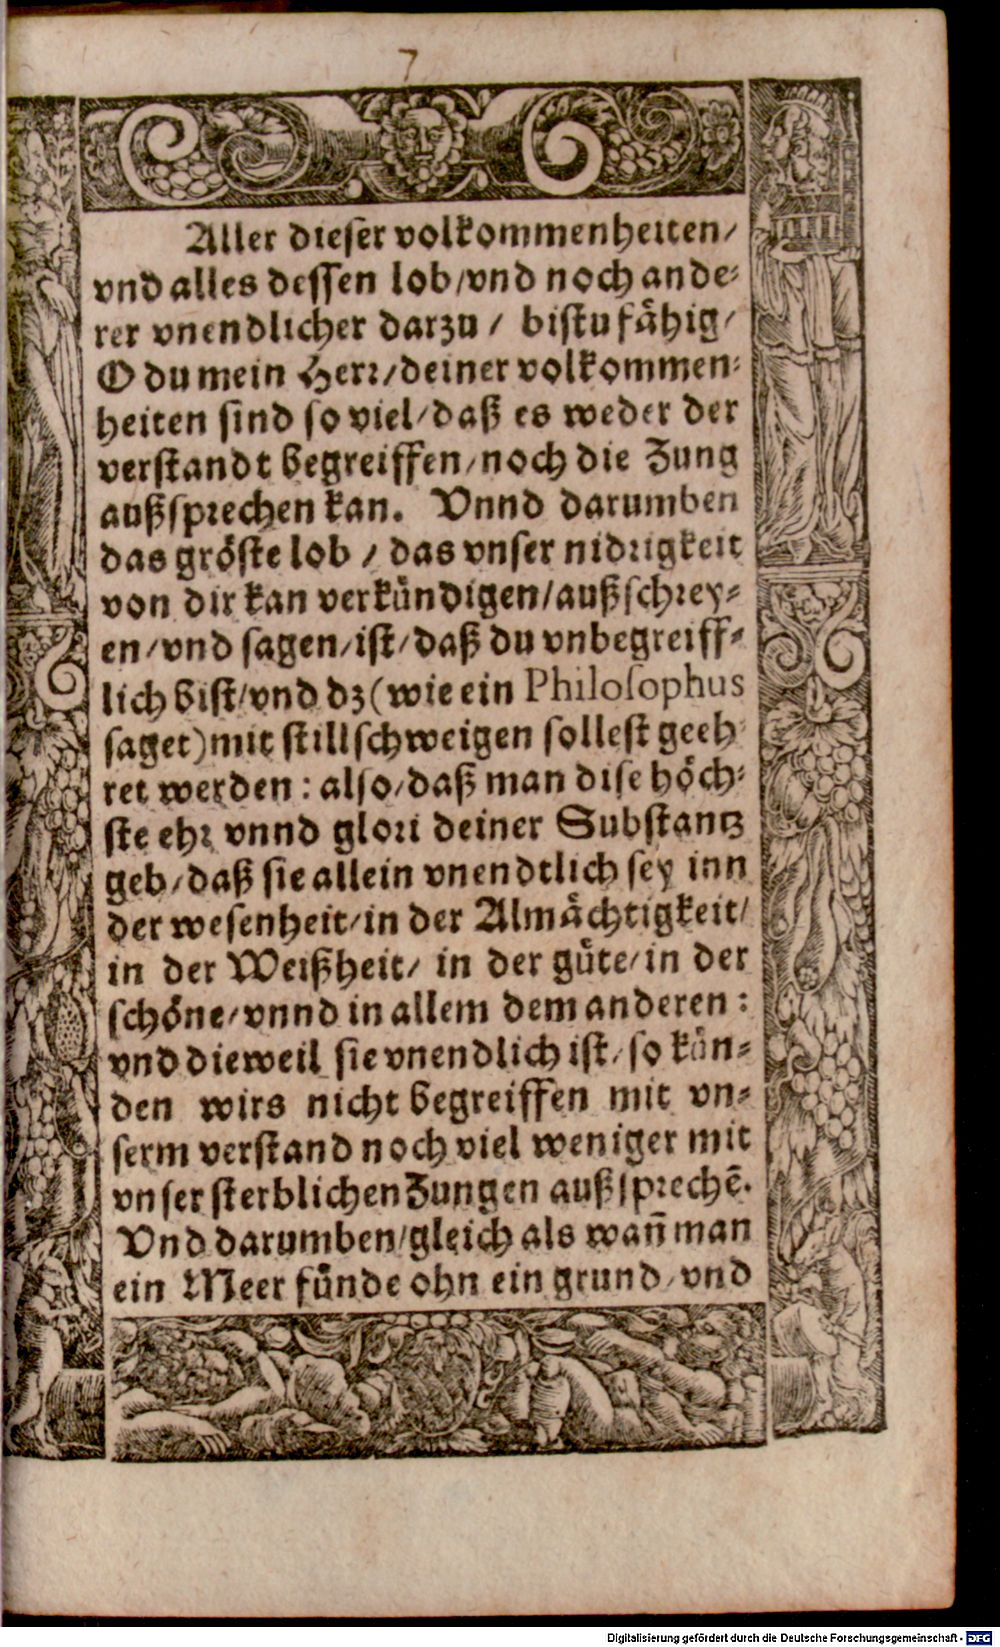 7
Aller dieser volkommenheiten/
vnd alles dessen lob/vnd noch ande-
rer vnendlicher darzu / bistu fähig/
O du mein Herr/deiner volkommen-
heiten sind so viel/daß es weder der
verstandt begreiffen/noch die Zung
außsprechen kan. Vnnd darumben
das gröste lob / das vnser nidrigkeit
von dir kan verkündigen/außschrey-
en/vnd sagen/ist/daß du vnbegreiff-
lich bist/vnd dz (wie ein Philosophus
saget) mit stillschweigen sollest geeh-
ret werden: also/daß man dise höch-
ste ehr vnnd glori deiner Substantz
geb/daß sie allein vnendtlich sey inn
der wesenheit/in der Almächtigkeit/
in der Weißheit/ in der güte/in der
schöne/vnnd in allem dem anderen:
vnd dieweil sie vnendlich ist/so kön-
den wirs nicht begreiffen mit vn-
serm verstand noch viel weniger mit
vnser sterblichen Zungen außsprechē.
Vnd darumben/gleich als wañ man
ein Meer fünde ohn ein grund/vnd
Digitalisierung gefördert durch die Deutsche Forschungsgemeinschaft - DFG